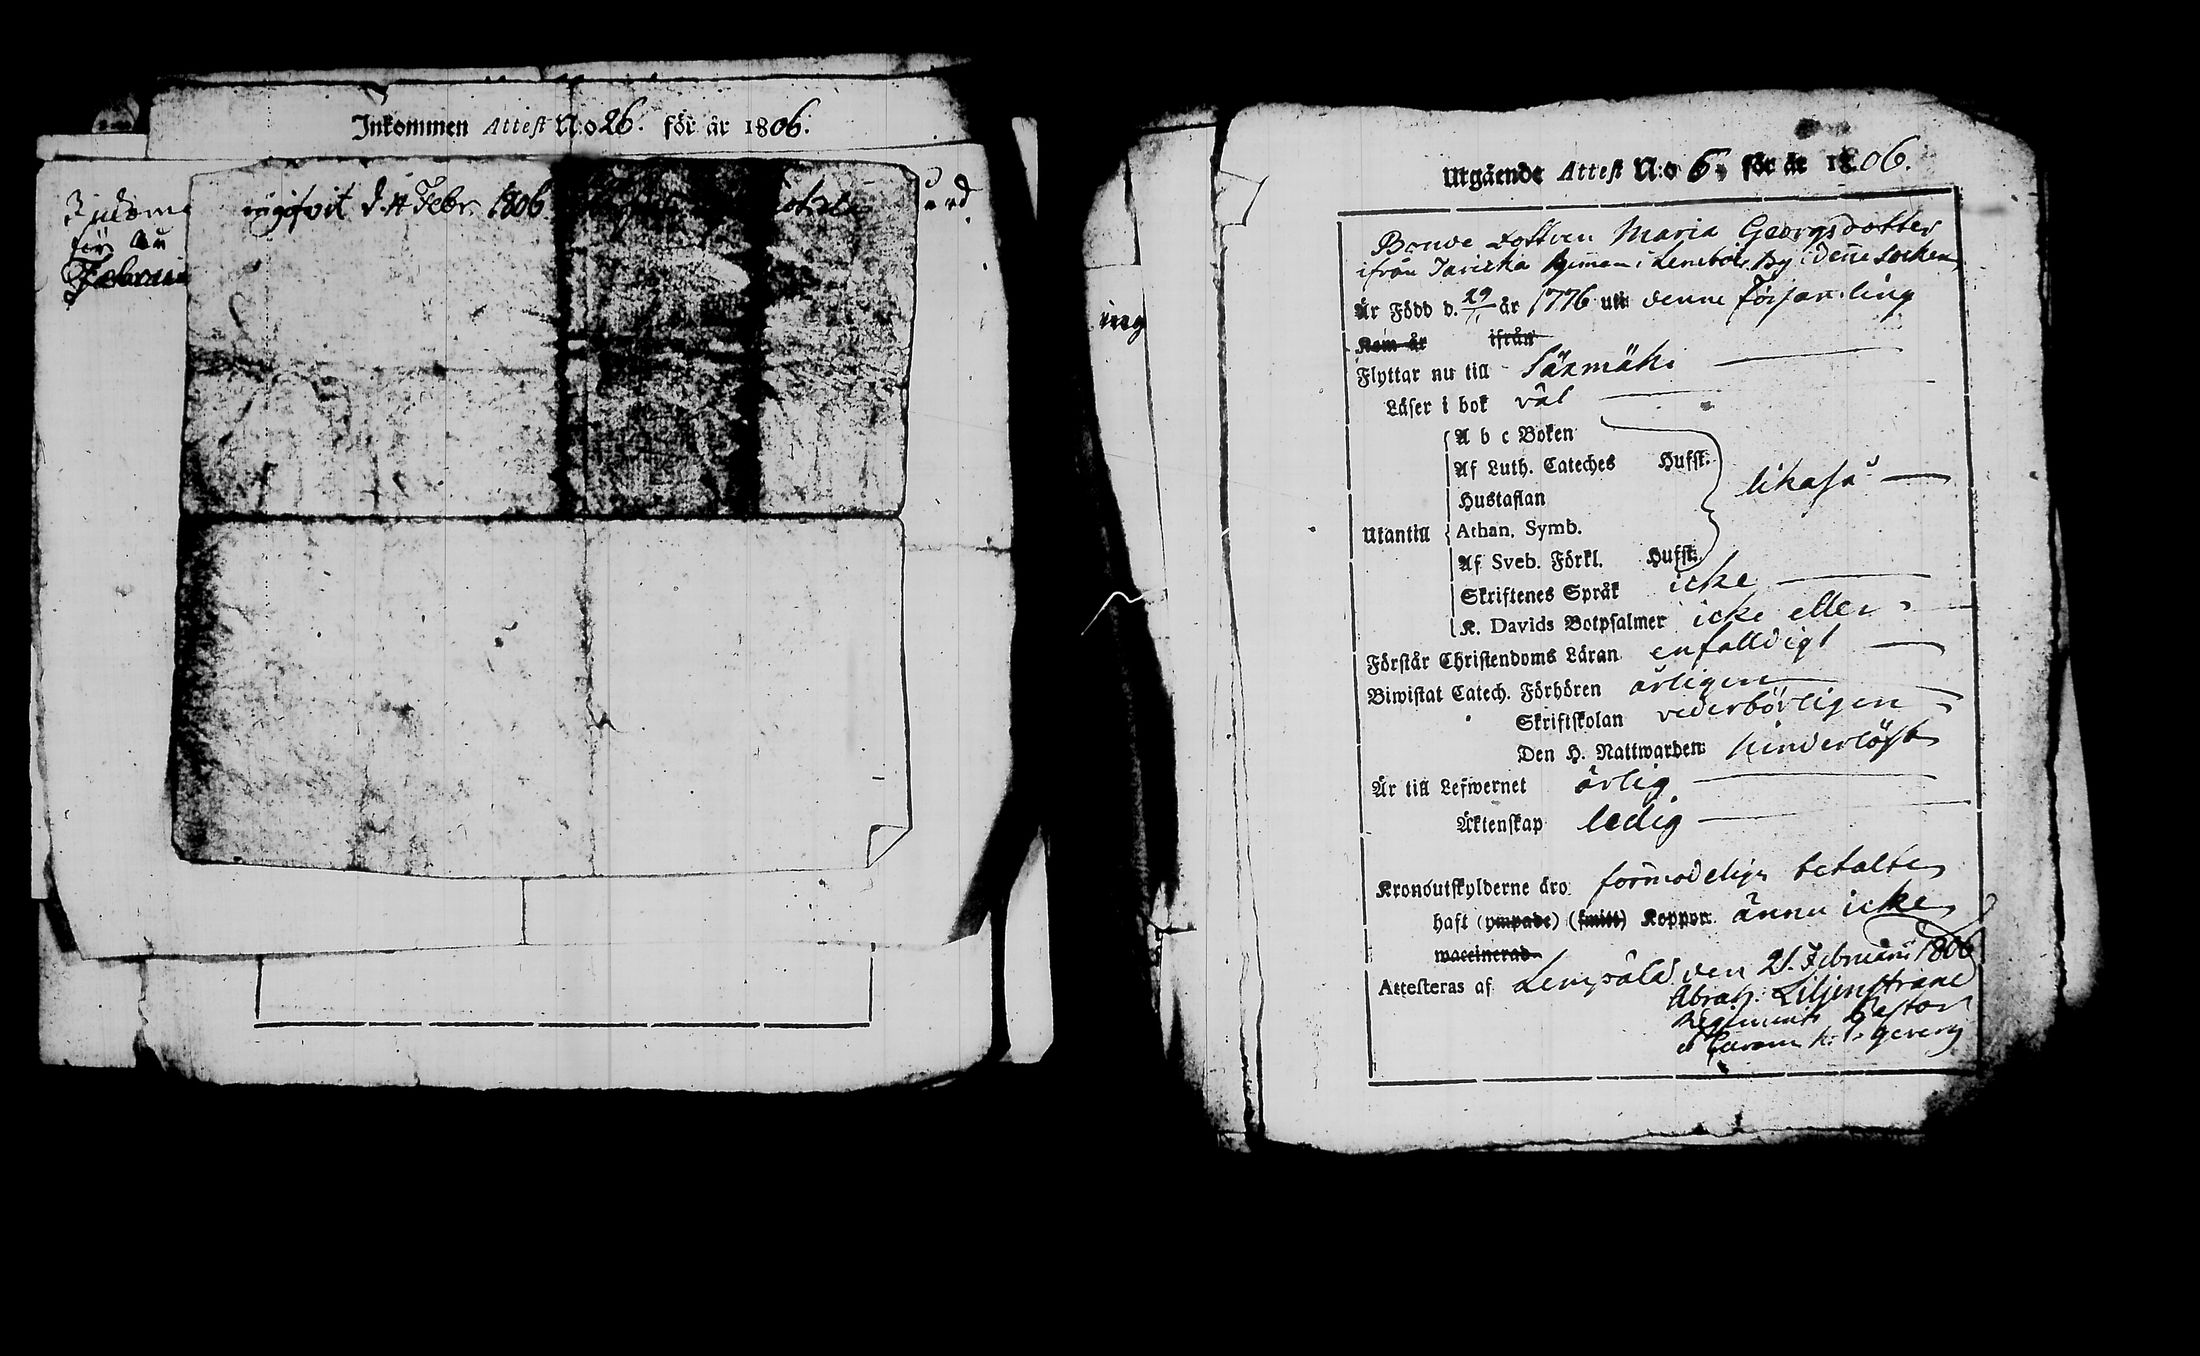 Inkommen Attest N:o 26. för år 1806.
ingifvit d. 4 Febr. 1806
för
Februarii
ing
Utgående Attest N:o 6. för år 1806.
Bonde Dottren Maria Georgsdotter
ifrån By i denne Socken
Är Född d. 29/11 år 1776 uti denne Församling
Kom år ifrån
Flyttar nu till Säxmäki
Läser i bok väl
A b c Boken
Af Luth. Cateches Hufst.
Hustaflan
likaså
Utantill Athan. Symb.
Af Sveb. Förkl. Hufst.
Skriftenes Språk icke
K. Davids Botpsalmer icke eller
Förstår Christendoms Läran enfalldigt
Biwistat Catech. Förhören årligen
Skriftskolan vederbörligen
Den H. Nattwarden hinderlöst
Är till Lefwernet ärlig
Äktenskap ledig
Kronoutskylderne äro förmodeligen betalte
haft (ympade) (smitt) Koppor ännu icke
waccinerad
Attesteras af Lempälä den 21. Februarii 1806
Abrah: Liljenstrand
Regiments Pastor